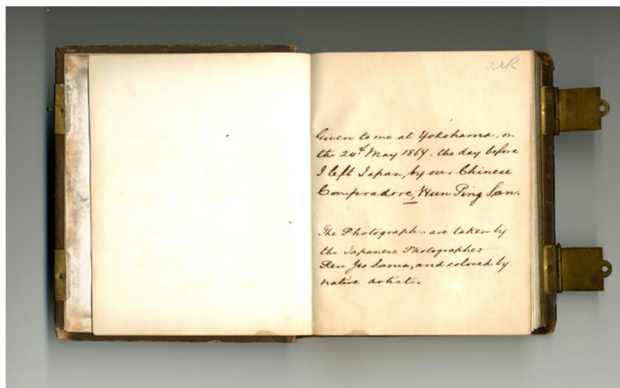 Given to me at Yokohama, on
the 24th May 1864, the day before
I left Japan, by our Chinese
Compradore, Hun Ping San.
The Photographs are taken by
the Japanese Photographer
Ren Jio Sama, and colored by
native artists.